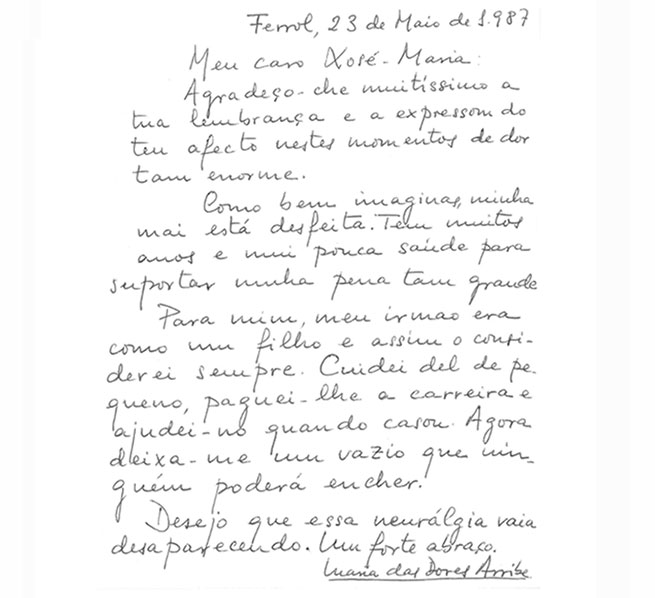 Ferrol, 23 de Maio de 1.987
Meu caro Xosé-Maria:
Agradeço-che muitíssimo a
tua lembrança e a expressom do
teu afecto nestes momentos de dor
tam enorme.
Como bem imaginas, minha
mai está desfeita. Tem muitos
anos e mui pouca saúde para
suportar unha pena tam grande
Para mim, meu irmao era
como um filho e assim o consi-
derei sempre. Cuidei del de pe-
queno, paguei-lhe a carreira e
ajudei-no quando casou. Agora
deixa-me um vazio que nin-
guém poderá encher.
Desejo que essa neurálgia vaia
desaparecendo. Um forte abraço.
Maria das Dores Arribe